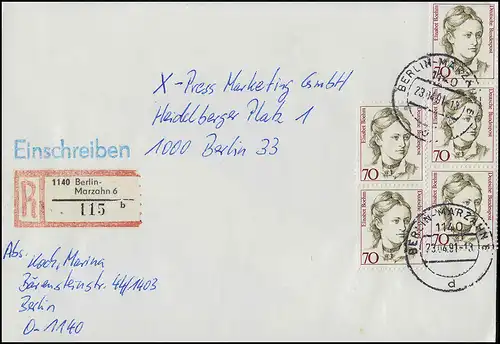 X-Press Marketing GmbH
Heidelberger Platz 1
1000 Berlin 33
Einschreiben
R
1140 Berlin-
Marzahn 6
115 b
Abs. Koch, Marina
Bärensteinstr. 44/1403
Berlin
O-1140
Elisabet Boehm
Deutsche Bundespost
70
Elisabet Boehm
Deutsche Bundespost
70
Elisabet Boehm
Deutsche Bundespost
70
Elisabet Boehm
Deutsche Bundespost
70
Elisabet Boehm
Deutsche Bundespost
70
BERLIN-MARZAHN
1140
23.04.91
d
BERLIN-MARZAHN
1140
23.04.91
d